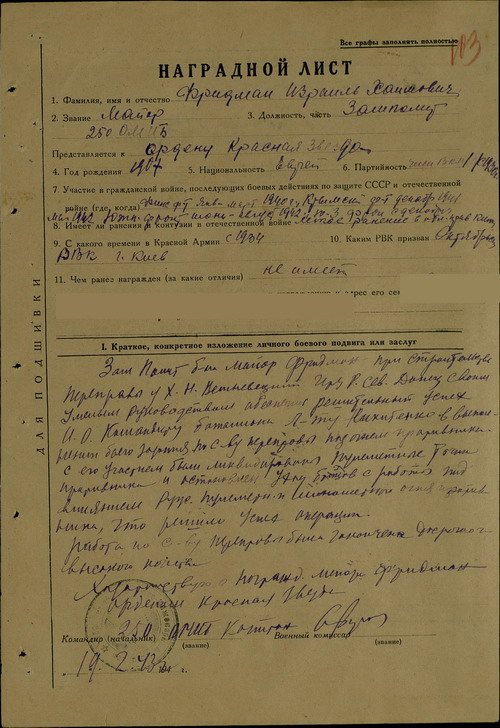 Все графы заполнять полностью
103
НАГРАДНОЙ ЛИСТ
1. Фамилия, имя и отчество Фридман Израиль Хаимович
2. Звание Майор 3. Должность, часть Замполит
250 ОМИБ
Представляется к ордену Красная Звезда
4. Год рождения 1907 5. Национальность Еврей 6. Партийность член ВКП(б)
7. Участие в гражданской войне, последующих боевых действиях по защите СССР и отечественной
войне (где, когда) янв-март 1940 г. Крымский фт декабр 1941
май 1942 Южн фронт июнь-август 1942
8. Имеет ли ранения и контузии в отечественной войне легкое ранение в
9. С какого времени в Красной Армии с 1934 10. Каким РВК призван Октябрьск
РВК г. Киев
11. Чем ранее награжден (за какие отличия) не имеет
ДЛЯ ПОДШИВКИ
I. Краткое, конкретное изложение личного боевого подвига или заслуг
Зам Ком бат майор Фридман при строительстве
переправы у Х. Н. через р. Сев. Донец своим
умелым руководством обеспечил решительный успех
И. О. Командиру батальона Л-ту Никитенко в выпол-
нении боев задания по с-ву переправы под огнем противника
С его участием были ликвидированы пулеметные точки
противника и остановлен уход бойцов с работы под
влиянием пулеметн. и огня против
ника, что решило успех операции.
Работа по с-ву переправы была закончена досрочно и
высоким качеством
Ходатайствую о награжд. майора Фридман
орденом Красная Звезда
Командир (начальник) 250 ОМИБ Капитан Военный комиссар
(звание) (звание)
19.2.43 г.